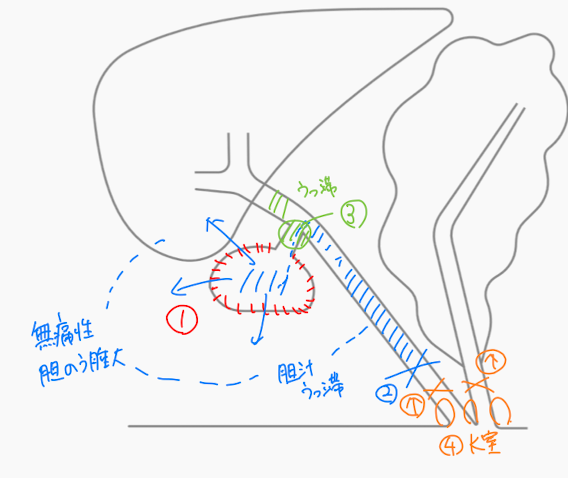 うっ滞
③
①
無痛性
胆のう腫大
胆汁
うっ滞
②
↑
↑
④ K室